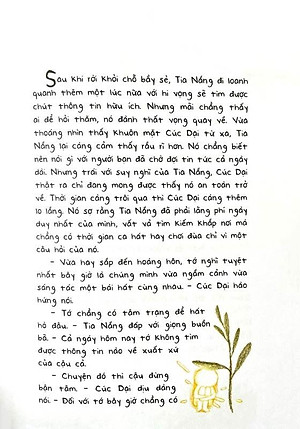 Sau khi rời khỏi chỗ bầy sẻ, Tia Nắng đi loanh
quanh thêm một lúc nữa với hi vọng sẽ tìm được
chút thông tin hữu ích. Nhưng mãi chẳng thấy
ai để hỏi thăm, nó đành thất vọng quay về. Vừa
thoáng nhìn thấy khuôn mặt Cúc Dại từ xa, Tia
Nắng lại càng cảm thấy rầu rĩ hơn. Nó chẳng biết
nên nói gì với người bạn đã chờ đợi tin tức cả ngày
dài. Nhưng trái với suy nghĩ của Tia Nắng, Cúc Dại
thật ra chỉ đang mong được thấy nó an toàn trở
về. Thời gian càng trôi qua thì Cúc Dại càng thêm
lo lắng. Nó sợ rằng Tia Nắng đã phải lãng phí ngày
duy nhất của mình, vất vả tìm kiếm khắp nơi mà
chẳng có thời gian ca hát hay chơi đùa chỉ vì một
câu hỏi của nó.
– Vừa hay sắp đến hoàng hôn, tớ nghĩ tuyệt
nhất bây giờ là chúng mình vừa ngắm cảnh vừa
sáng tác một bài hát cùng nhau. – Cúc Dại hào
hứng nói.
– Tớ chẳng có tâm trạng để hát
hò đâu. – Tia Nắng đáp với giọng buồn
bã. – Cả ngày hôm nay tớ không tìm
được thông tin nào về xuất xứ
của cậu cả.
– Chuyện đó thì cậu đừng
bận tâm. – Cúc Dại dịu dàng
nói. – Đối với tớ bây giờ chẳng có